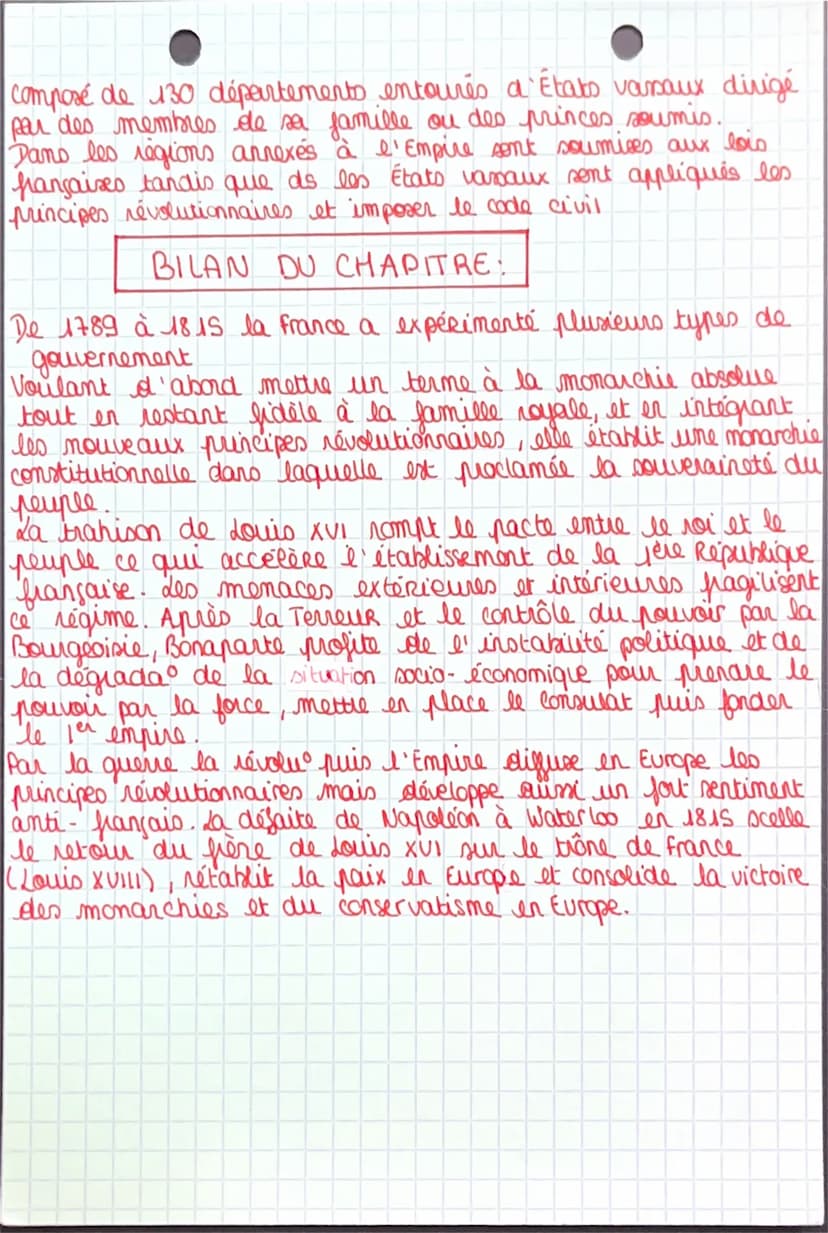 composé de 130 départements entourés d'États vassaux dirigé
par des membres de sa famille ou des princes soumis.
Dans les régions annexés à l'Empire sont soumises aux lois
françaises tandis que ds les États vassaux sont appliqués les
principes révolutionnaires et imposer le code civil
BILAN DU CHAPITRE :
De 1789 à 1815 la france a expérimenté plusieurs types de
gouvernement
Voulant d'abord mettre un terme à la monarchie absolue
tout en restant fidèle à la famille royale, et en intégrant
les nouveaux principes révolutionnaires, elle établit une monarchie
constitutionnelle dans laquelle est proclamée la souveraineté du
peuple.
La trahison de Louis XVI rompt le pacte entre le roi et le
peuple ce qui accélère l'établissement de la 1ère République
française. Les menaces extérieures et intérieures fragilisent
ce régime. Après la Terreur et le contrôle du pouvoir par la
Bourgeoisie, Bonaparte profite de l'instabilité politique et de
la dégrada° de la situation socio-économique pour prendre le
pouvoir par la force, mettre en place le Consulat puis fonder
le 1er empire.
Par la guerre la révolu° puis l'Empire diffuse en Europe les
principes révolutionnaires mais développe aussi un fort sentiment
anti-français. La défaite de Napoléon à Waterloo en 1815 scelle
le retour du frère de Louis XVI sur le trône de France
(Louis XVIII), rétablit la paix en Europe et consolide la victoire
des monarchies et du conservatisme en Europe.